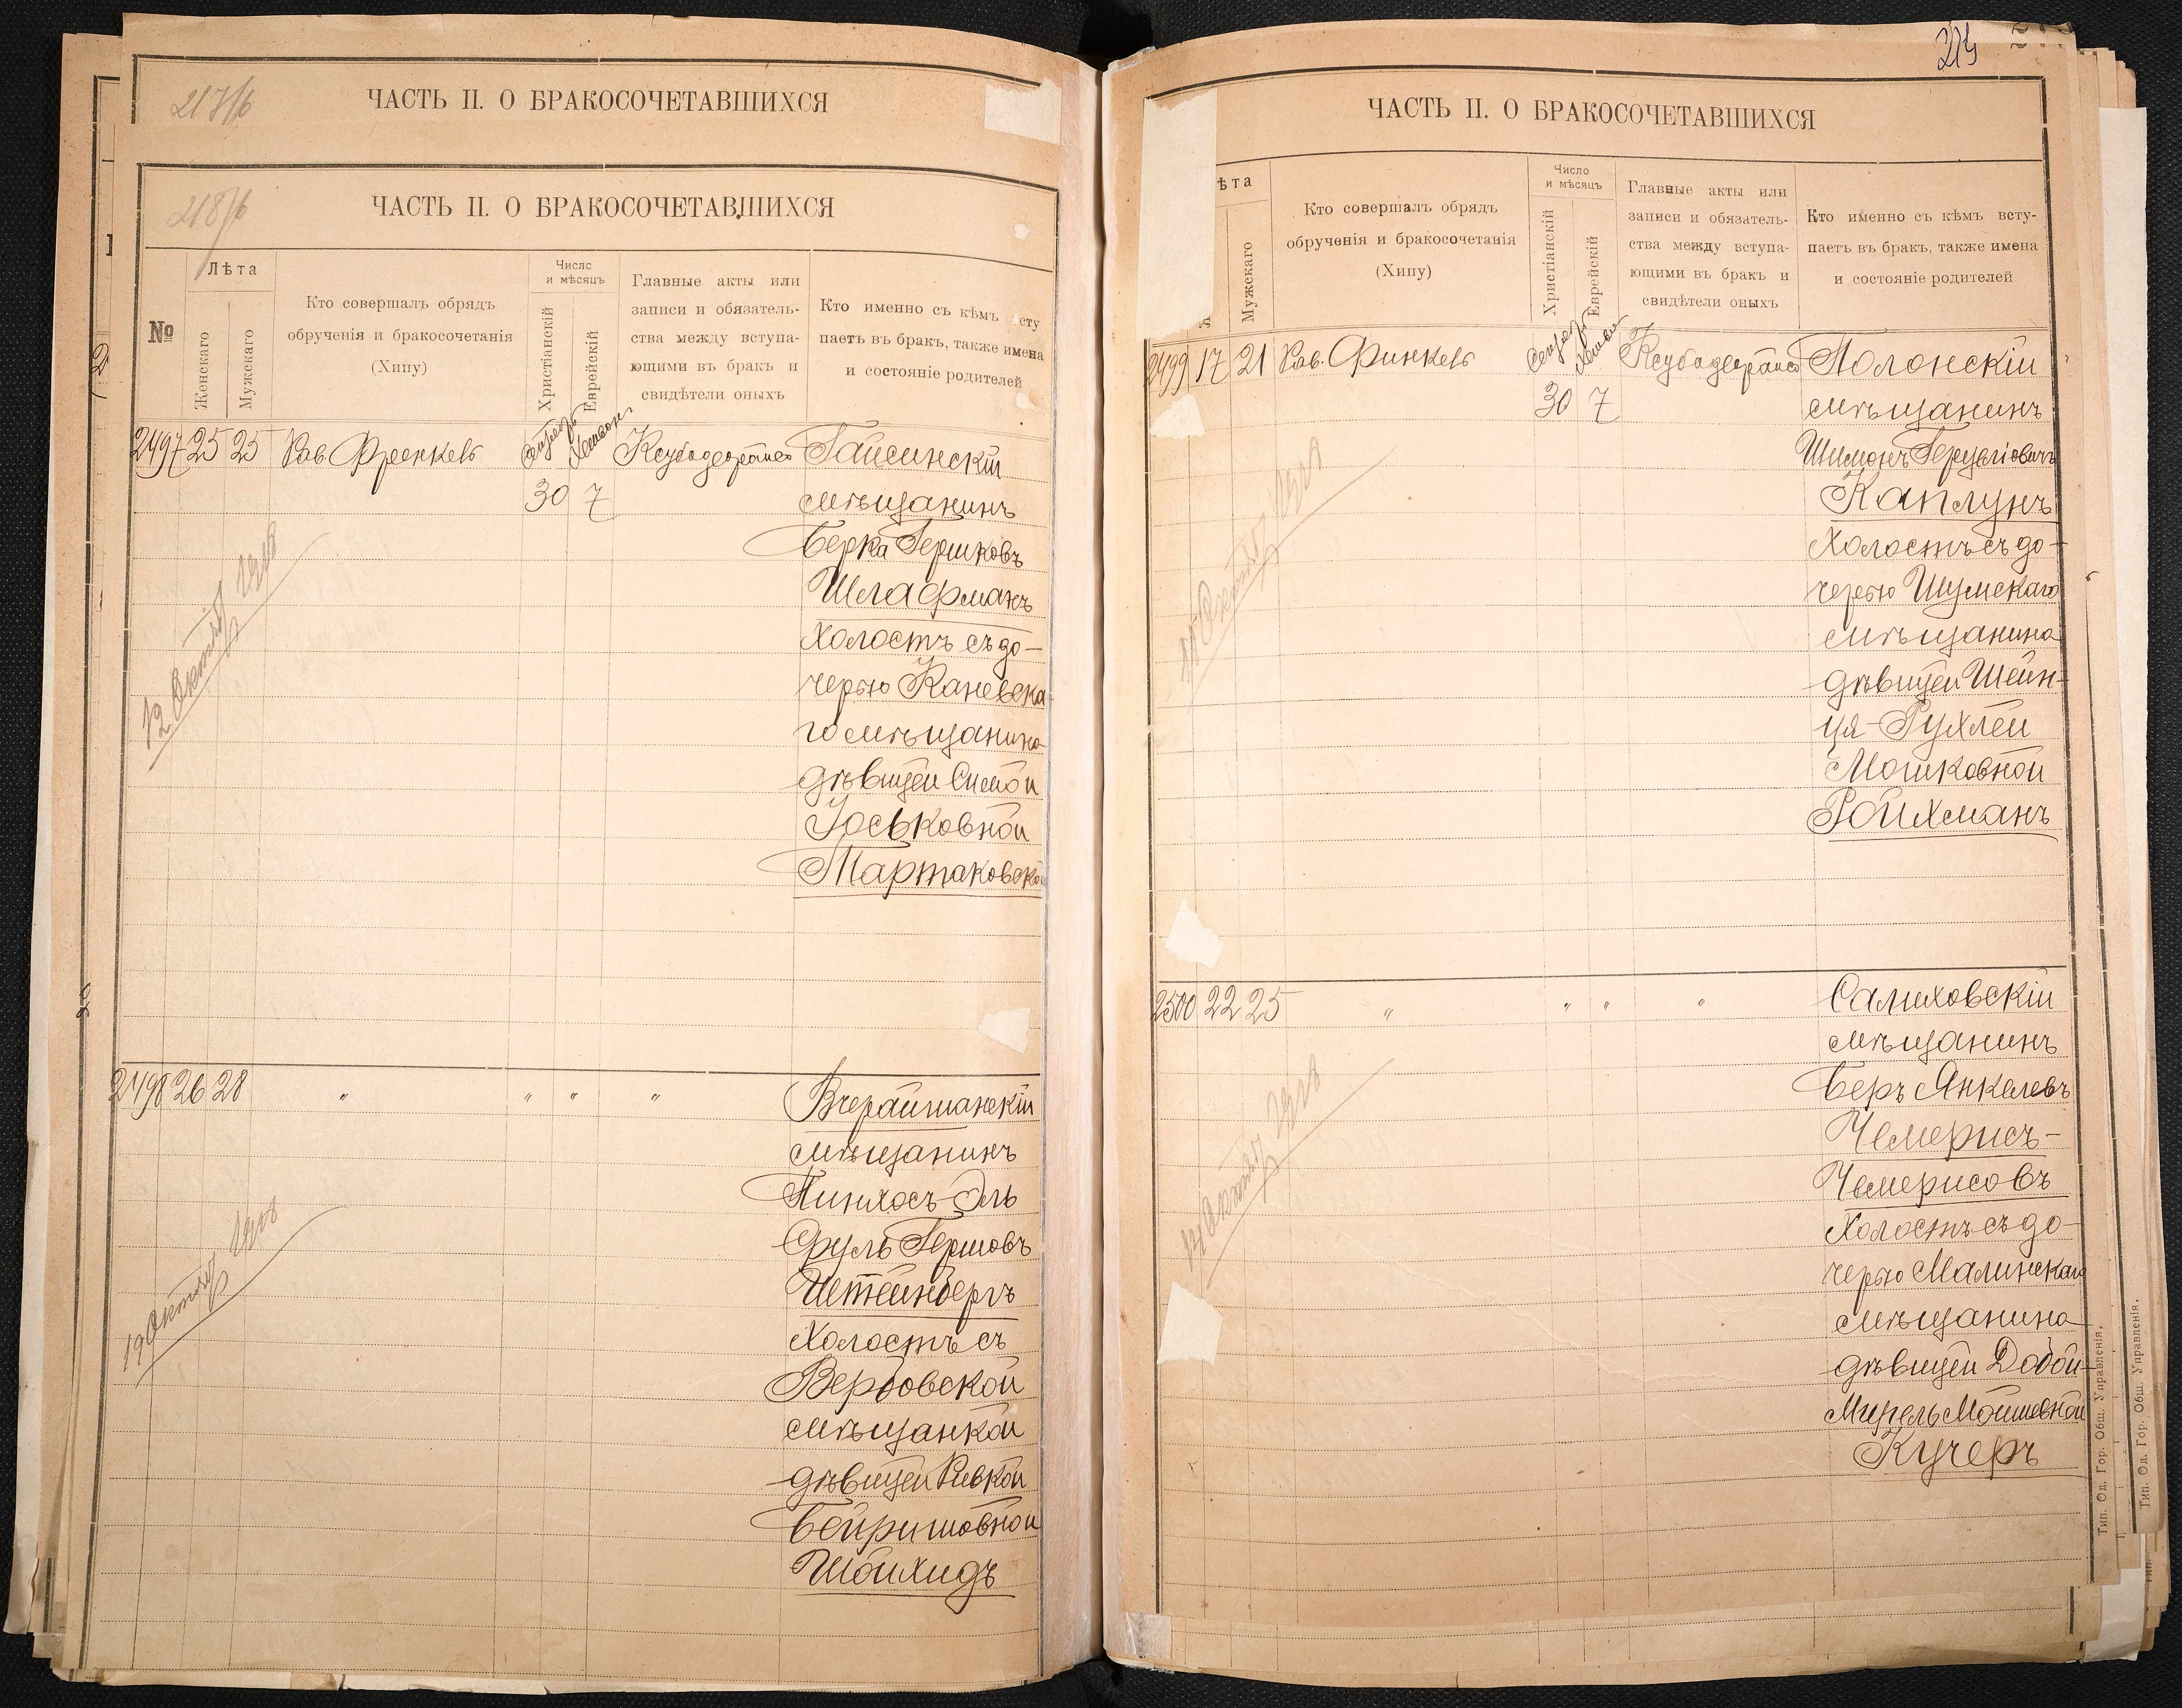 217/б
ЧАСТЬ II. О БРАКОСОЧЕТАВШИХСЯ
218/б
ЧАСТЬ II. О БРАКОСОЧЕТАВШИХСЯ
№
Лѣта
Женскаго
Мужскаго
Кто совершалъ обрядъ
обрученія и бракосочетанія
(Хипу)
Число
и мѣсяцъ
Христіанскій
Еврейскій
Главные акты или
записи и обязатель-
ства между вступа-
ющими въ бракъ и
свидѣтели оныхъ
Кто именно съ кѣмъ сту
паетъ въ бракъ, также имена
и состояніе родителей
2497 25 25 Рав. Френкель
30 7
Гайсинскій
мѣщанинъ
Берка Гершковъ
Шлафманъ
холостъ съ до-
черью Каневска
го мѣщанина
дѣвицей Симой
Іоськовной
Мартаковской
12 Октября 1918
2498 26 28 " " " "
Вчерайшанскій
мѣщанинъ
Пинхосъ-Эль
Сруль Гершовъ
Штейнбергъ
холостъ съ
Вербовской
мѣщанкой
дѣвицей Ривкой
Бейришовной
Шойхидъ
19 Октября 1918
ЧАСТЬ II. О БРАКОСОЧЕТАВШИХСЯ
ѣта
Мужскаго
Кто совершалъ обрядъ
обрученія и бракосочетанія
(Хипу)
Число
и мѣсяцъ
Христіанскій
Еврейскій
Главные акты или
записи и обязатель-
ства между вступа-
ющими въ бракъ и
свидѣтели оныхъ
Кто именно съ кѣмъ всту-
паетъ въ бракъ, также имена
и состояніе родителей
2499 17 21 Рав. Финкель
30 7
Полонскій
мѣщанинъ
Шимонъ
Каплунъ
холостъ съ до-
черью Шумскаго
мѣщанина
дѣвицей Шейн-
ця-Рухлей
Мошковной
Ройхманъ
2500 22 25 " " " "
Салиховскій
мѣщанинъ
Беръ Янкелевъ
Чемерисъ-
Чемерисовъ
холостъ съ до-
черью Малинскаго
мѣщанина
дѣвицей Добой-
Мирель Мошевной
Кучеръ
Тип. Од. Гор. Общ. Управленія.
Тип. Од. Гор. Общ. Управленія.